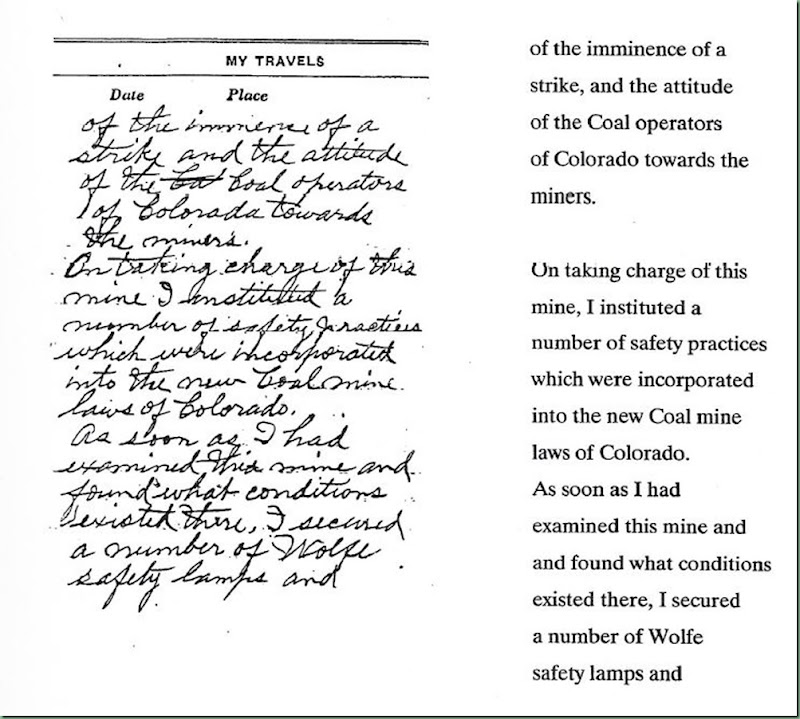 MY TRAVELS
Date Place
of the immenence of a
strike and the attitude
of the Coal operators
of Colorada towards
the miners.
On taking charge of this
mine I instituted a
number of safety practices
which were incorporated
into the new Coal mine
laws of Colorado.
As soon as I had
examined this mine and
found what conditions
existed there, I secured
a number of Wolfe
safety lamps and
of the imminence of a
strike, and the attitude
of the Coal operators
of Colorado towards the
miners.
On taking charge of this
mine, I instituted a
number of safety practices
which were incorporated
into the new Coal mine
laws of Colorado.
As soon as I had
examined this mine and
and found what conditions
existed there, I secured
a number of Wolfe
safety lamps and